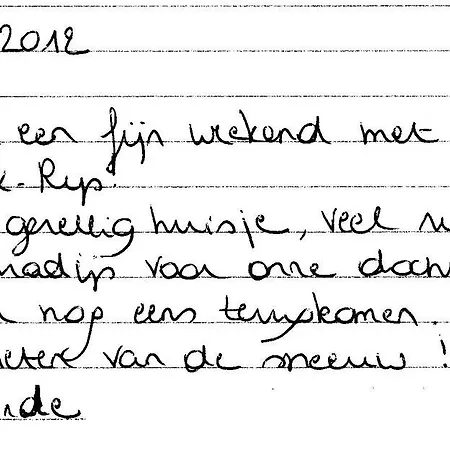 2012
een fijn weekend met
k-Rijp!
gezellig huisje, veel
paradijs voor onze doch
nog eens terugkomen.
genieten van de sneeuw!
nde